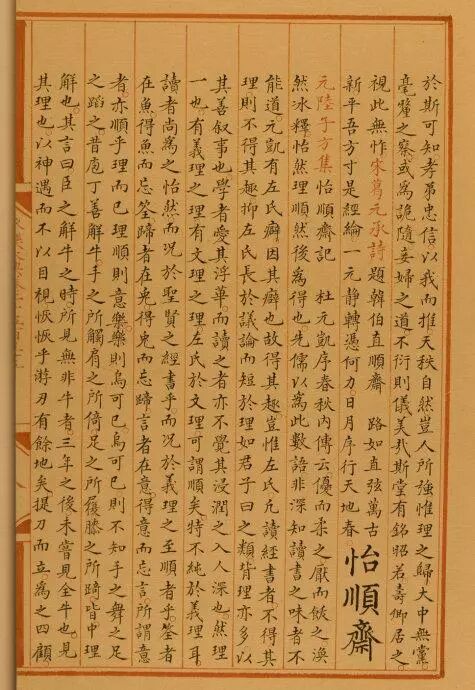 於斯可知孝弟忠信以我而推天秩自然豈人所強惟理之歸大中無黨
毫釐之察或為詭隨妾婦之道不衍則儀美哉斯堂有銘昭若壽御居之
視此無怍宋葛元承詩題韓伯直順齋 路如直弦萬古
新平吾方寸是經綸一元静轉憑何力日月序行天地春
怡順齋
元陸子方集怡順齋記 杜元凱序春秋內傳云優而柔之厭而飫之渙
然冰釋怡然理順然後為得也先儒以為此數語非深知讀書之味者不
能道元凱有左氏癖因其癖也故得其趣豈惟左氏凡讀經書者不得其
理則不得其趣抑左氏長於議論而短於理如君子曰之類背理亦多以
其善叙事也學者愛其浮華而讀之者亦不覺其浸潤之入人深也然理
一也有義理之理有文理之理左氏於文理可謂順矣特不純於義理耳
讀者尚為之怡然而况於聖賢之經書乎而况於義理之至順者乎筌者
在魚得魚而忘筌蹄者在兔得兔而忘蹄言者在意得意而忘言所謂意
者亦順乎理而已理順則意樂樂則烏可已烏可已則不知手之舞之足
之蹈之昔庖丁善解牛手之所觸肩之所倚足之所履膝之所踦皆中理
解也其言曰臣之解牛之時所見無非牛者三年之後未嘗見全牛也見
其理也以神遇而不以目視恢恢乎游刃有餘地矣提刀而立為之四顧